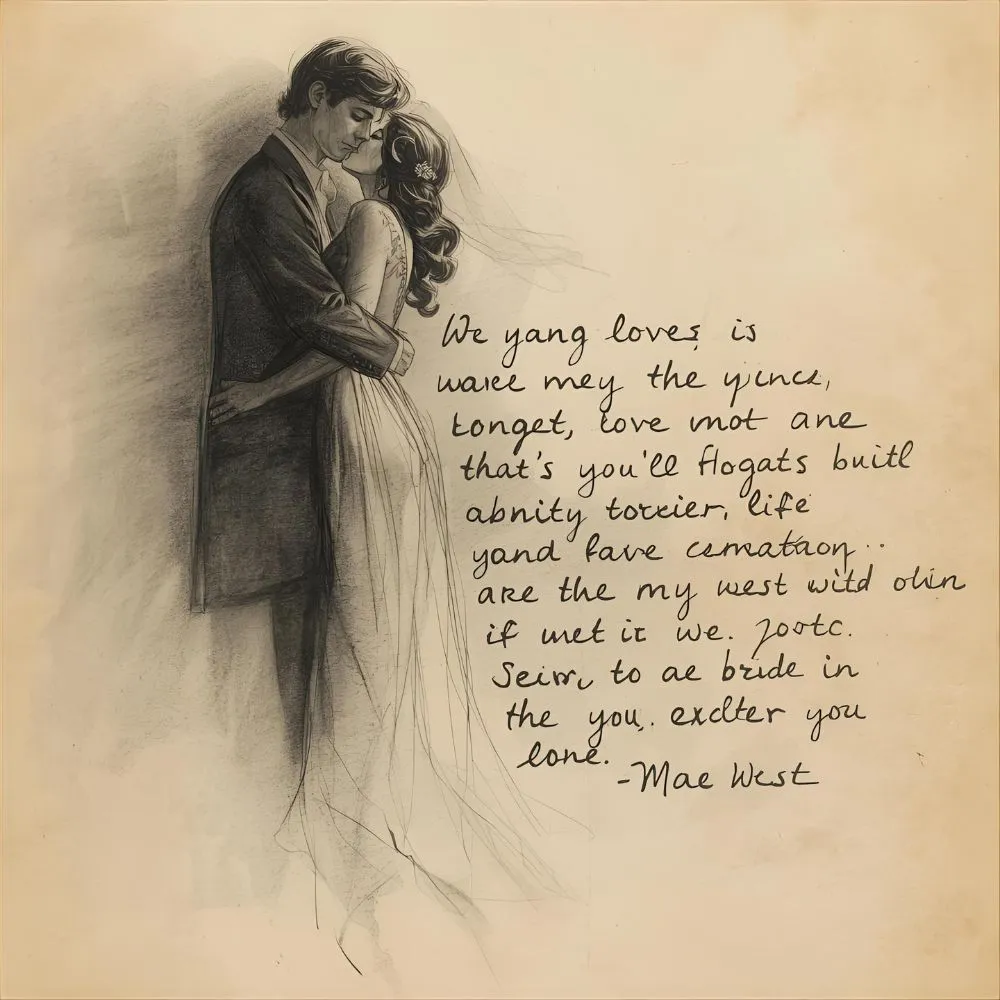 We yang loves is
waree mey the yincz,
tonget, love mot ane
that's you'll flogats buitl
abnity torcier, life
yand fave cemataon ..
are the my west witd olin
if wet it we. Jootc.
Seirr, to ae bride in
the you. exclter you
lone.
-Mae West